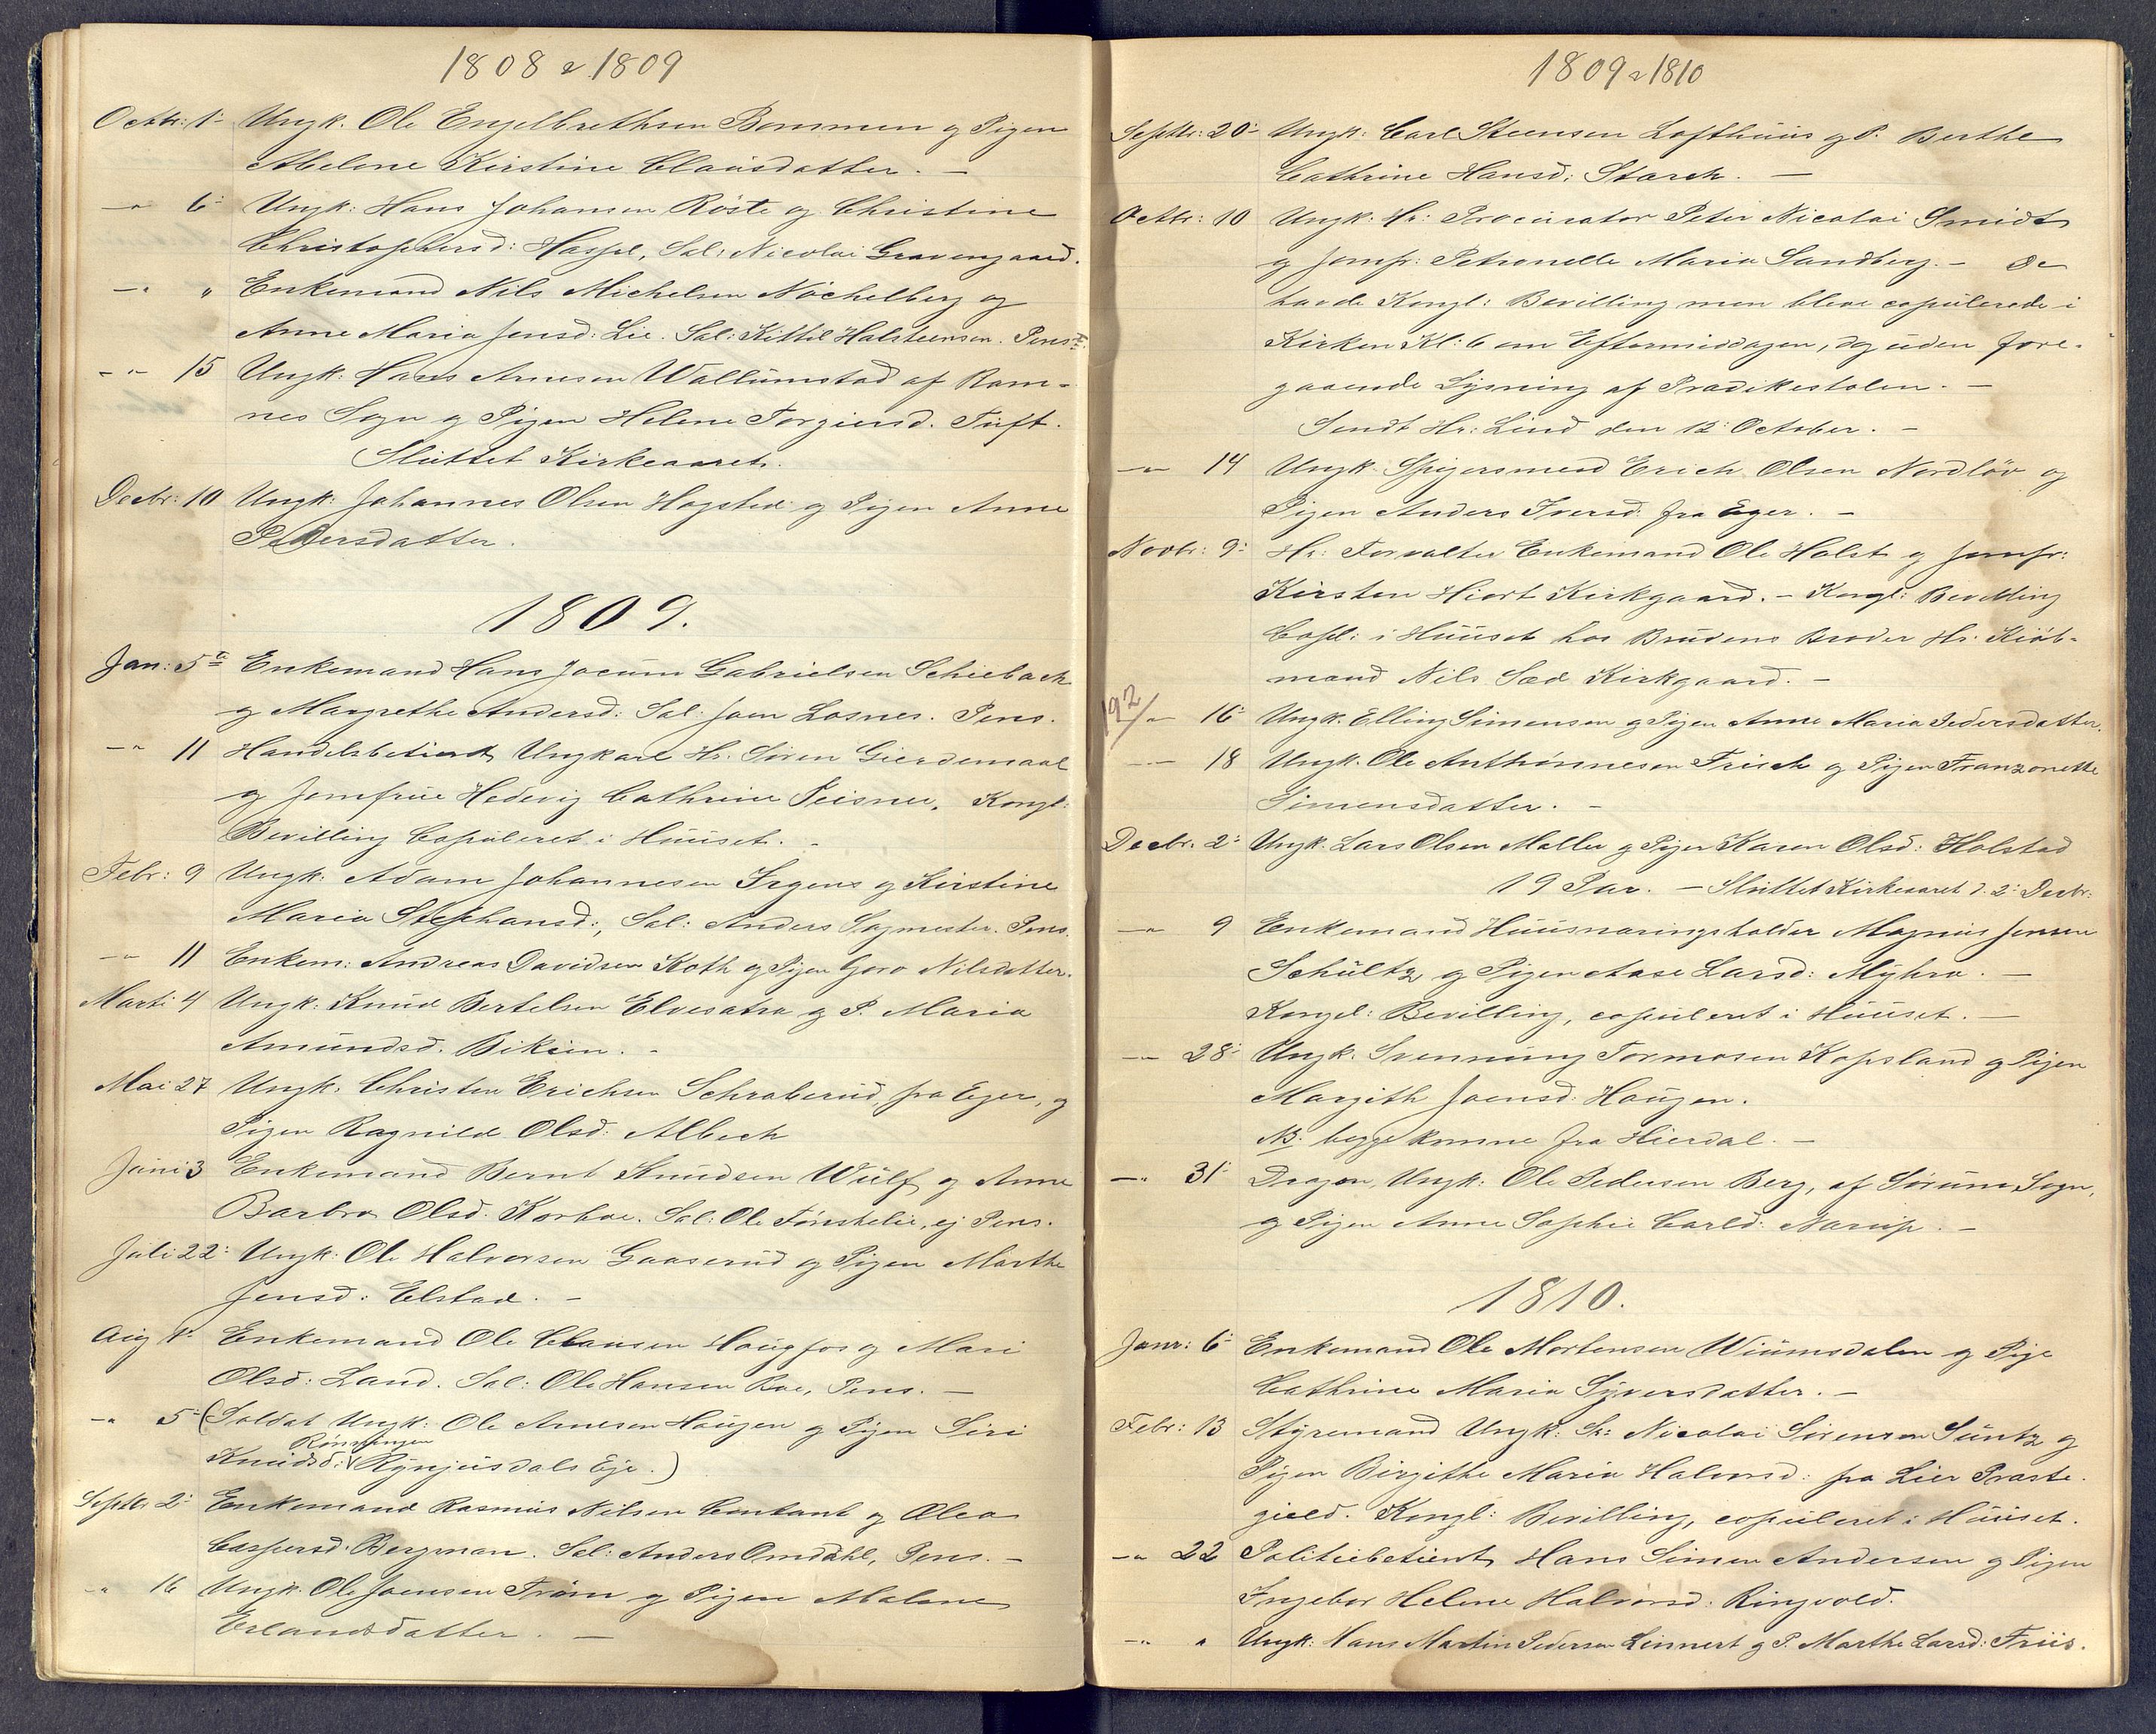 1808 & 1809
Octbr: 1: Ungk. Ole Engelbrethsen Bommen og Pigen
Abelone Kirstine Clausdatter. —
—" 6: Ungk: Hans Johansen Röste og Christine
Christophersd: Hassel, Sal: Nicolai Gravengaard.
—" " Enkemand Nils Michelsen Nöchelberg og
Anne Maria Jensd: Lie. Sal: Kittil Halsteensen. Pens.
—" 15 Ungk: Hans Arnesen Wallumstad af Ram-
nes Sogn og Pigen Helene Torgiersd. Tuft.
Sluttet Kirkeaaret.
Decbr: 10 Ungk: Johannes Olsen Hogsted og Pigen Anne
Pedersdatter.
1809.
Jan: 5te Enkemand Hans Jocum Gabrielsen Schiebach
og Margrethe Andersd: Sal: Joen Losnes. Pens.
—" 11 Handelsbetient Ungkarl Hr. Sören Gierdemaal
og Jomfrue Hedevig Cathrine Peisner. Kongl:
Bevilling Copuleret i Huuset. —
Febr: 9 Ungk: Adam Johannesen Irgens og Kirstine
Maria Stephansd:, Sal: Anders Sagmester. Pens.
—" 11 Enkem: Andreas Davidsen Koth og Pigen Goro Nilsdatter.
Marti 4 Ungk: Knud Bertelsen Elvesatra og P. Maria
Amundsd. Bikien. -
Mai 27 Ungk. Christen Erichsen Schraberud, fra Eger, og
Pigen Ragnild Olsd: Albech
Juni 3 Enkemand Bernt Knudsen Wulf og Anne
Barbra Olsd. Korboe. Sal: Ole Fönskelie, ej Pens.
Juli 22: Ungk: Ole Halvorsen Gaaserud og Pigen Marthe
Jensd: Elstad. -
Aug 1: Enkemand Ole Clausen Haugfos og Mari
Olsd: Land. Sal: Ole Hansen Roe, Pens. —
—" 5: (Soldat Ungk: Ole Arnesen Haugen og Pigen Siri
Rönningen
Knudsd: Rynjusdals Eje.)
Septbr 2: Enkemand Rasmus Nilsen Contant og Olea
Caspersd. Bergman. Sal: Anders Omdahl, Pens. —
—" 16 Ungk. Ole Joensen Tröm og Pigen Malene
Erlandsdatter. —
1809 & 1810
Septbr: 20: Ungk: Carl Steensen Lofthuus og P. Berthe
Cathrine Hansd: Starch. —
Octbr: 10 Ungk: Hr: Procurator Peter Nicolai Smidt
og Jomfr: Petronelle Maria Sandberg. — De
havde Kongl: Bevilling men bleve copulerede i
Kirken Kl: 6 om Eftermiddagen, dog uden fore-
gaaende Lysning af Prædikestolen. —
Sendt Hr: Lind den 12: October. —
—" 14 Ungk. Spigersmed Erich Olsen Nordlöv og
Pigen Anders Iversd. fra Eger. —
Novbr: 9: Hr: Forvalter Enkemand Ole Holst og Jomfr:
Kirsten Hiort Kirkgaard. — Kongl: Bevilling
Copl: i Huuset hos Brudens Broder Hr. Kiöb-
mand Nils Sæd Kirkgaard. —
192/
—" 16: Ungk. Elling Simensen og Pigen Anne Maria Pedersdatter.
—" 18 Ungk. Ole Anthonnesen Frisch og Pigen Franzonette
Simensdatter. —
Decbr. 2: Ungk. Lars Olsen Moller og Pigen Karen Olsd: Holstad
19 Par. — Sluttet Kirkeaaret d. 2: Decbr:
—" 9 Enkemand Huusnæringsholder Magnus Jensen
Schultz og Pigen Aase Larsd: Myhra. —
Kongel: Bevilling, copuleret i Huuset. —
—" 28: Ungk. Svenning Tormosen Kopsland og Pigen
Margith Joensd: Haugen.
NB: begge komne fra Hierdal. —
—" 31: Dragon, Ungk: Ole Pedersen Berg, af Sörum Sogn,
og Pigen Anne Sophie Carld: Narup. —
1810.
Janr: 6: Enkemand Ole Mortensen Wiumsdalen og Pige
Cathrine Maria Syversdatter. —
Febr: 13 Styremand Ungk: Sr: Nicolai Sörensen Suntz og
Pigen Birgithe Maria Halvorsd: fra Lier Præste-
gield. Kongl: Bevilling, copuleret i Huuset.
—" 22 Politiebetient Hans Simen Andersen og Pigen
Ingebor Helene Halvorsd: Ringvold.
—" " Ungk: Hans Martin Pedersen Linnert og P. Marthe Larsd: Friis.